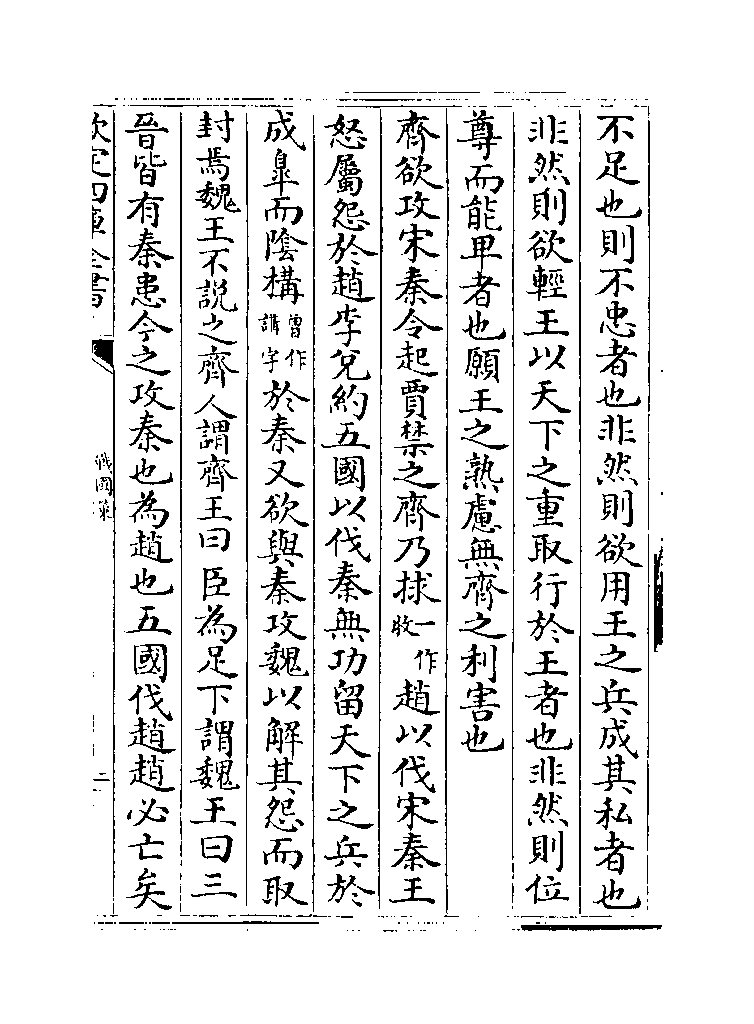 不足也則不忠者也非然則欲用王之兵成其私者也
非然則欲輕王以天下之重取行於王者也非然則位
尊而能卑者也願王之熟慮無齊之利害也
齊欲攻宋秦令起賈禁之齊乃捄一作收趙以伐宋秦王
怒屬怨於趙李兌約五國以伐秦無功留天下之兵於
成臯而隂構曾作講字於秦又欲與秦攻魏以解其怨而取
封焉魏王不說之齊人謂齊王曰臣為足下謂魏王曰三
晉皆有秦患今之攻秦也為趙也五國伐趙趙必亡矣
欽定四庫全書
戰國策
二